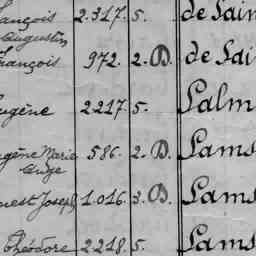 ançois 2.317. 5. de Sain
Augustin
rançois 972. 2. D. de Sai
ugène 2217. 5. Salm
ugène Marie 586. 2. D. Sams
Ange
nest Joseph 1.016. 3. D. Sams
Théodore 2218. 5. Sams